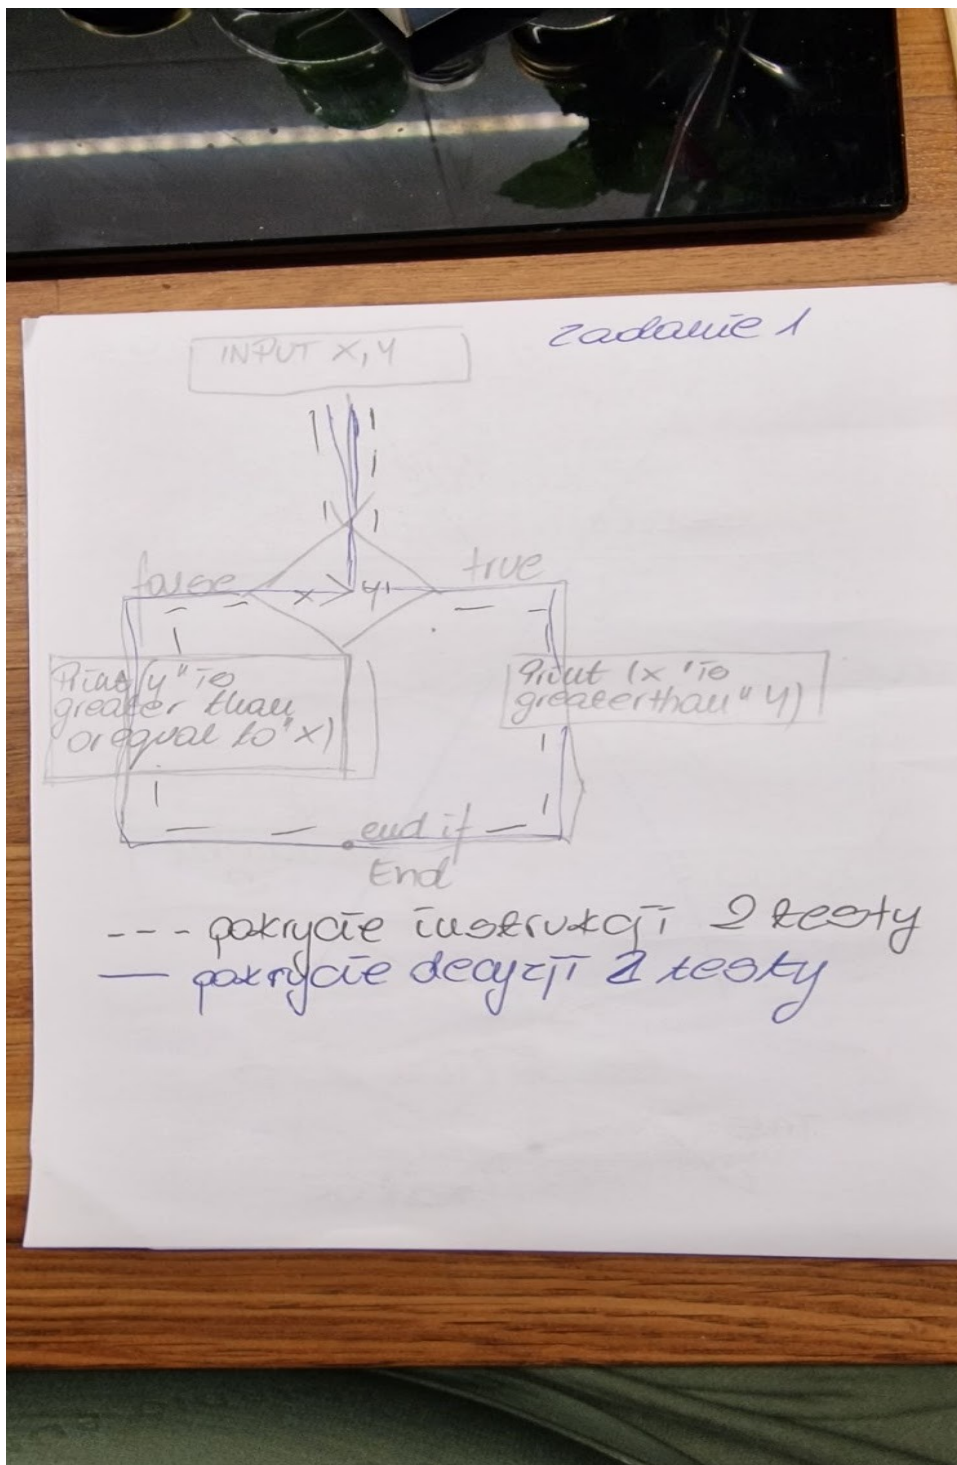 zadanie 1
INPUT X, Y
false
true
X > Y
Print (y "is
greater than
or equal to "x)
Print (x "is
greaterthan" y)
end if
End
--- pokrycie instrukcji 2 testy
— pokrycie decyzji 2 testy